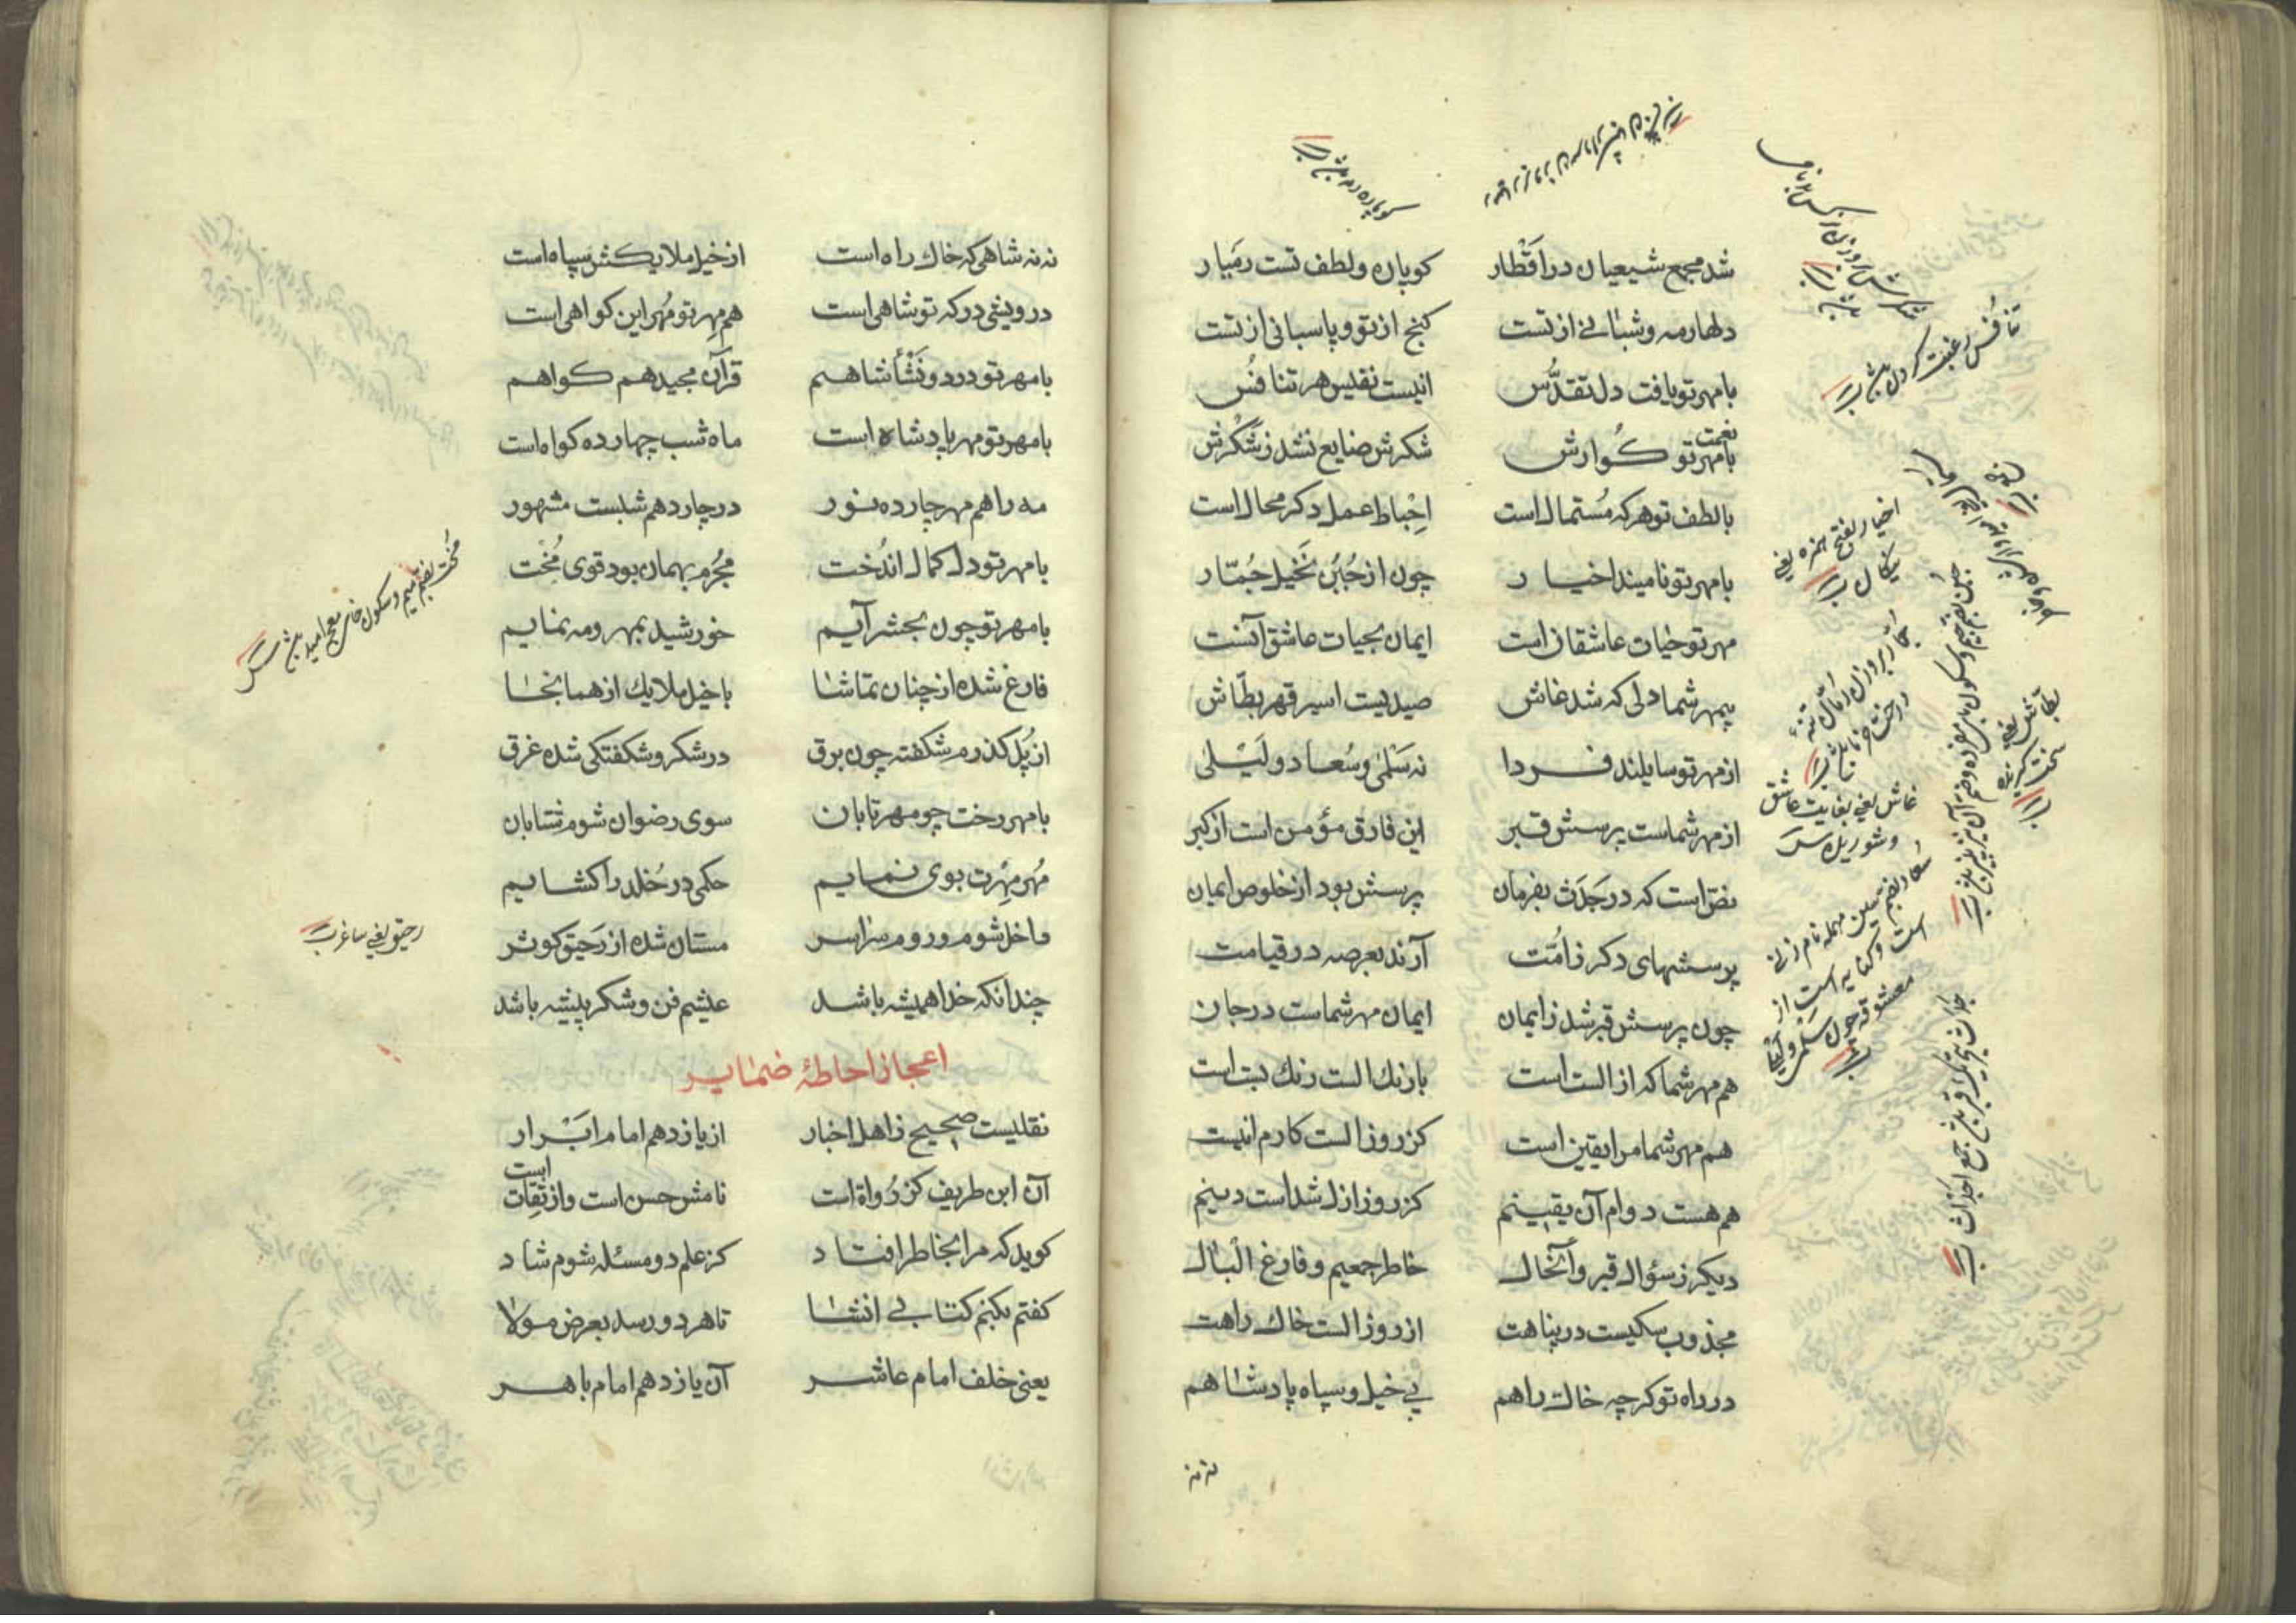 شد مجمع شیعیان در اَقْطار کوپان ولطف تست رمیار
دلهارمه وشبانی از تست کنج از تو وپاسبانی از تست
بامهر تو یافت دل تقدُّس انیست نفیس هر تنافُس
نعمت
بامهر تو کُوارش شکرش ضایع نشد ز شکرش
بالطف تو هر که مُستمال است اِحْباط عمل دکر محال است
بامهر تو نامیند اخیار چون از جُبُن نَخیل جُمّار
مهر تو حیات عاشقان است ایمان بحیات عاشق آنست
بمهر شما دلی که شد غاش صیدیست اسیر قهر بطّاش
از مهر تو سایلند فردا نه سَلْمیٰ وسُعاد ولَیْلی
از مهر شماست پرسش قبر این فارق مؤمن است از کبر
نص است که در جَدَث بفرمان پرسش بود از خلوص ایمان
پرسشهای دکر ز امُّت آرند بعرصه در قیامت
چون پرسش قبر شد ز ایمان ایمان مهر شماست در جان
هم مهر شما که از الست است بازنک الست رنک بست است
هم مهر شما مرا یقین است کز روز الست کارم انیست
هم هست دوام آن یقینم کز روز ازل شداست دینم
دیکر ز سؤال قبر وآنحال خاطر جمعیم وفارغ الْبال
مجذوب سکیست در پناهت از روز الست خاک راهت
در راه تو کرچه خاک راهم بی خیل وسپاه پادشاهم
نه نه
تنافُس رغبت کردن باشد
اخیار بفتح همزه یعنی
نیکان
جُمّار بر وزن رُمّان تنهٔ
درخت خرما باشد
غاش یعنی بغایت عاشق
وشوریده
سُعاد بضم سین مهمله نام زنی
است وکنایه است از
معشوقه چون سلمی ولیلی
بطّاش یعنی
سخت گیرنده
نه نه شاهی که خاک راه است از خیل ملایکش سپاه است
درویشی دوکه تو شاهی است هم مِهر تو مُهر این کواهی است
بامهر تو در دو نَشْأ شاهم قرآن مجید هم کواهم
بامهر تو مهر پادشاه است ماه شب چهارده کواه است
مه را هم مهر چارده نور در چاردهم شبست مشهور
بامهر تو دل کمال اندُخت مُجْرِم بهمان بود قوی مُخْت
بامهر تو چون بحشر آیم خورشید بمهر ومه نمایم
فارغ شده از چنان تماشا باخیل ملایک از همانجا
از پُل کذرم شکفته چون برق در شکر وشکفتکی شده غرق
بامهر رخت چو مهر تابان سوی رضوان شوم شتابان
مُهر مِهْرت بوی نمایم حکمی در خُلد را کشایم
داخل شوم وروم سراسر مستان شده از رَحیق کوثر
چندانکه خدا همیشه باشد عیشم فن وشکر پیشه باشد
اعجاز احاطهٔ ضمایر
نقلیست صحیح ز اهل اخبار از یازدهم امام اَبْرار
آن ابن طریف کز رُواة است نامش حسن است واز ثِقات است
کوید که مرا بخاطر افتاد کز علم دو مسئله شوم شاد
کفتم بکنم کتابی انشا تا هر دو رسد بعرض مولا
یعنی خلف امام عاشر آن یازدهم امام باهر
مُخْت بضم میم وسکون خای معجم امید باشد
رحیق یعنی ساغر